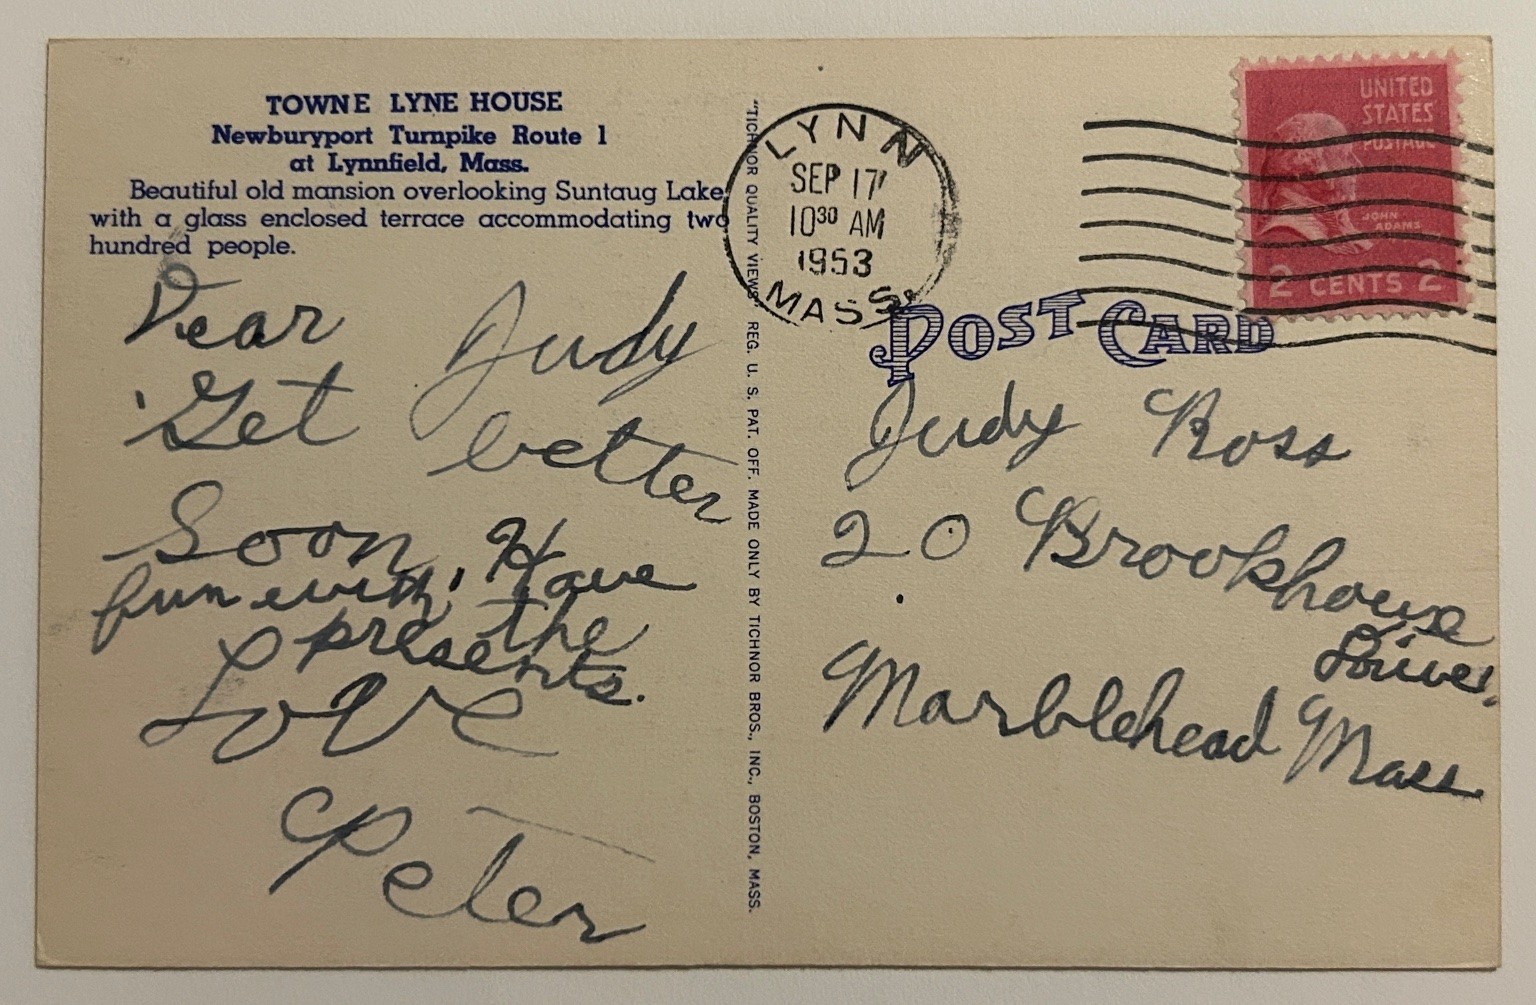 TOWNE LYNE HOUSE
Newburyport Turnpike Route 1
at Lynnfield, Mass.
Beautiful old mansion overlooking Suntaug Lake
with a glass enclosed terrace accommodating two
hundred people.
Dear Judy
Get better
Soon. Have
fun with the
presents.
Love
Peter
"TICHNOR QUALITY VIEWS" REG. U. S. PAT. OFF. MADE ONLY BY TICHNOR BROS., INC., BOSTON, MASS.
LYNN
SEP 17
10 30 AM
1953
MASS.
UNITED
STATES
POSTAGE
JOHN
ADAMS
2 CENTS 2
POST CARD
Judy Ross
20 Brookhouse
Drive,
Marblehead Mass